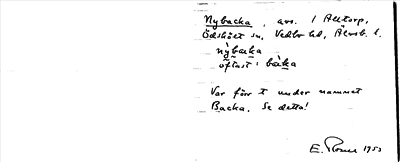 Nybacka, avs. i Alltorp,
Ödskölt sn, Vedbo hd, Älvsb. l.
nỳbac̀ka
oftast i bàcka
Var förr t under namnet
Backa. Se detta!
E. 1953